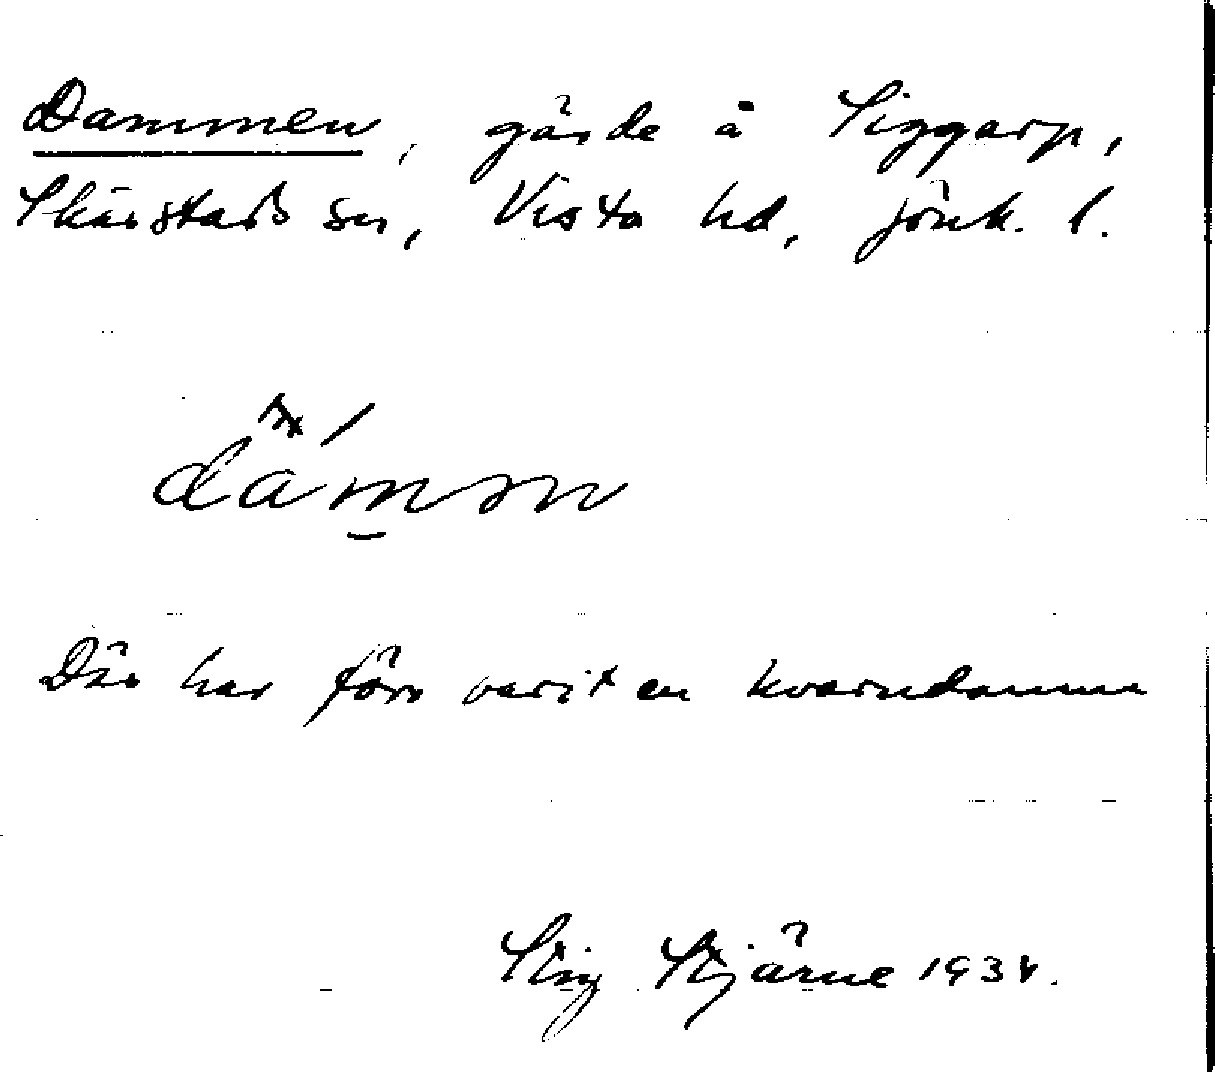 Dammen, gärde å Siggarp,
Skärstads sn, Vista hd, Jönk. l.
Där har förr varit en kvarndamm
Stig Stjärne 1934.